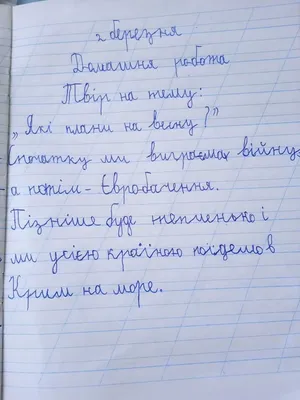 2 березня
Домашня робота
Твір на тему:
„Які плани на весну?"
Спочатку ми виграємо війну,
а потім - Євробачення.
Пізніше буде тепленько і
ми усією країною поїдемо в
Крим на море.